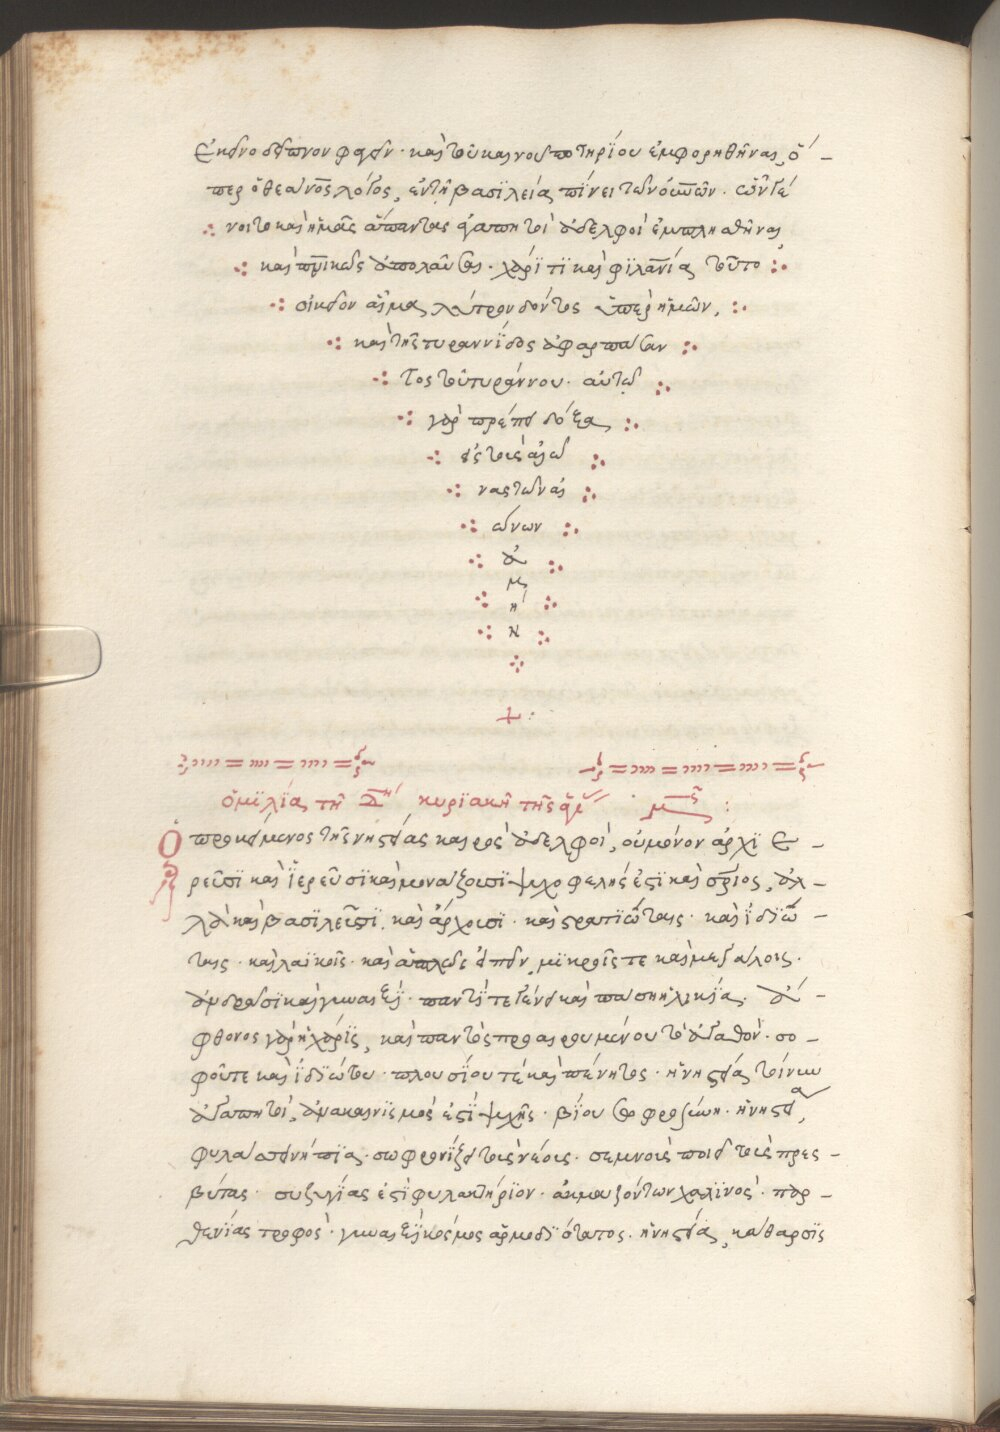 ἐκεῖνο δεῖπνον φαγεῖν· καὶ τοῦ καινοῦ ποτηρίου ἐμφορηθῆναι, ὅ-
περ ὁ θεάν̅ο̅ς̅ λόγος, ἐν τῇ βασϊλεία πίνει τῶν ο̅υ̅ν̅ῶ̅ν̅. ὧν γέ
νοιτο καὶ ἡμᾶς ἅπαντας ἀγαπητοὶ ἀδελφοὶ ἐμπλησθῆναι,
καὶ π̅ν̅ϊκῶς ἀπολαῦσαι· χάρϊτϊ καὶ φϊλα̅ν̅ίας τοῦ τὸ
οἰκεῖον αἷμα, λύτρον δόντος ὑπὲρ ἡμῶν,
καὶ τῆς τυραννίδος ἀφαρπάσαν
τος τοῦ τυράννου· αὐτῶ
γὰρ πρέπει δόξα
εἰς τοὺς αἰῶ
νας τῶν αἰ
ώνων
ἀ
μ
ή
ν
ὁμϊλίας τῆ Δ κυρϊακῆ τῆς ἁγ μ
Ὁ προκείμενος τῆς νηστείας καιρὸς ἀδελφοί, οὐ μόνον ἀρχϊε-
ρεῦσϊ καὶ ἱερεῦσϊ καὶ μονάζουσϊ ψυχοφελής ἐστϊ καὶ σ̅ρ̅ιος, ἀλ-
λὰ καὶ βασϊλεῦσϊ, καὶ ἄρχουσϊ· καὶ στρατϊώταις· καὶ ἰδϊώ-
ταις· καὶ λαϊκοῖς· καὶ ἁπλῶς εἰπεῖν, μϊκροῖς τε καὶ μεγάλοις·
ἀνδράσϊ καὶ γυναιξὶ· παντὶ τε γένει καὶ πάση ἡλικία. ἄ-
φθονος γὰρ ἡ χάρϊς, καὶ παντὸς προαιρουμένου τὸ ἀγαθόν· σο-
φοῦ τε καὶ ἰδϊώτου· πλουσίου τέ καὶ πένητος· ἡ νηστεία τοίνυν
ἀγαπητοί, ἀνακαινϊσμός ἐστϊ ψυχῆς· βίου σωφροσύνη· ἡ νηστεία,
φυλάσσει νήπϊα· σωφρονίζει τοὺς νέους· σεμνοὺς ποιεῖ τοὺς πρεσ-
βύτας· συζυγίας ἐστϊ φυλακτήρϊον· ἀκμαζόντων χαλϊνός· παρ-
θενίας τροφός· γυναιξὶ κόσμος ἁρμοδϊώτατος· ἡ νηστεία, κάθαρσϊς